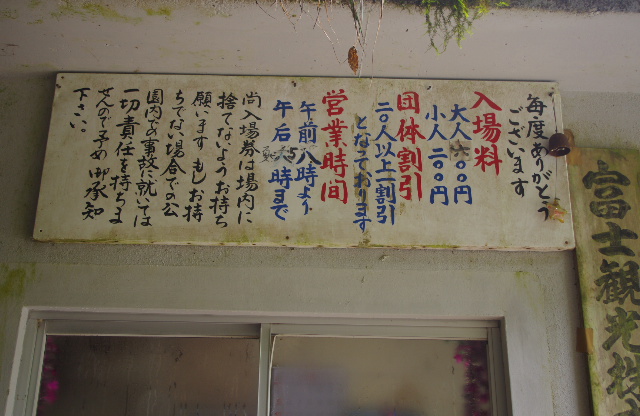 毎度ありがとう
ございます
入場料
大人 六〇〇円
小人 二〇〇円
団体割引
二〇人以上一割引
となっております
営業時間
午前八時より
午后 時まで
尚入場券は場内に
捨てないようお持ち
願います もしお持
ちでない場合での公
園内での事故に就いては
一切責任を持ちま
せんので予め御承知
下さい。
富士観光